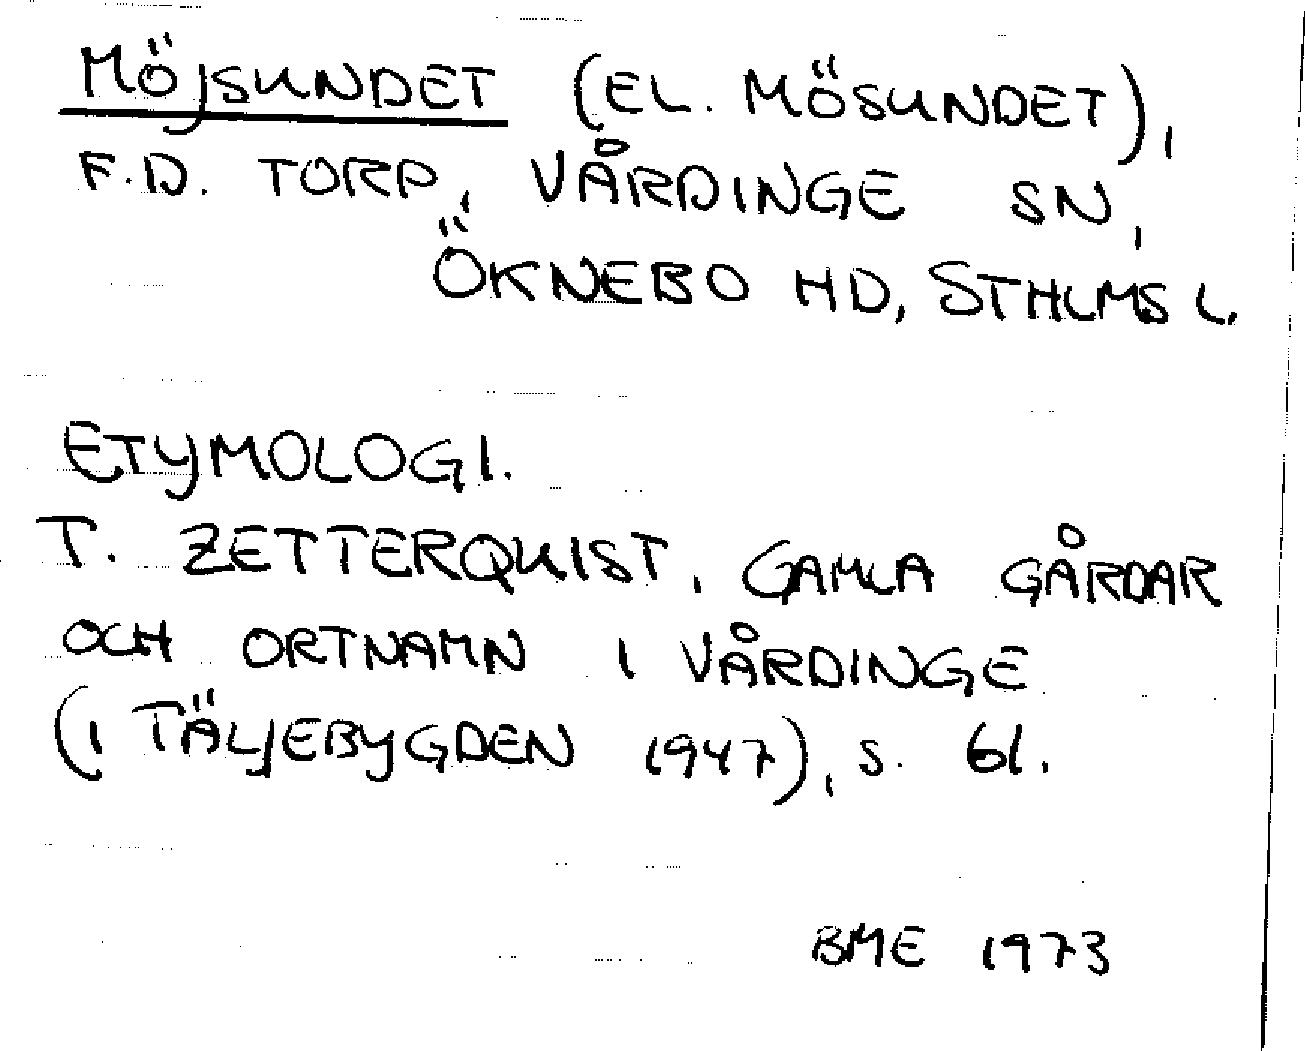 MÖJSUNDET (EL. MÖSUNDET),
F.D. TORP, VÅRDINGE SN,
ÖKNEBO HD, STHLMS L.
ETYMOLOGI.
T. ZETTERQUIST, GAMLA GÅRDAR
OCH ORTNAMN I VÅRDINGE
(I TÄLJEBYGDEN 1947), S. 61.
BME 1973